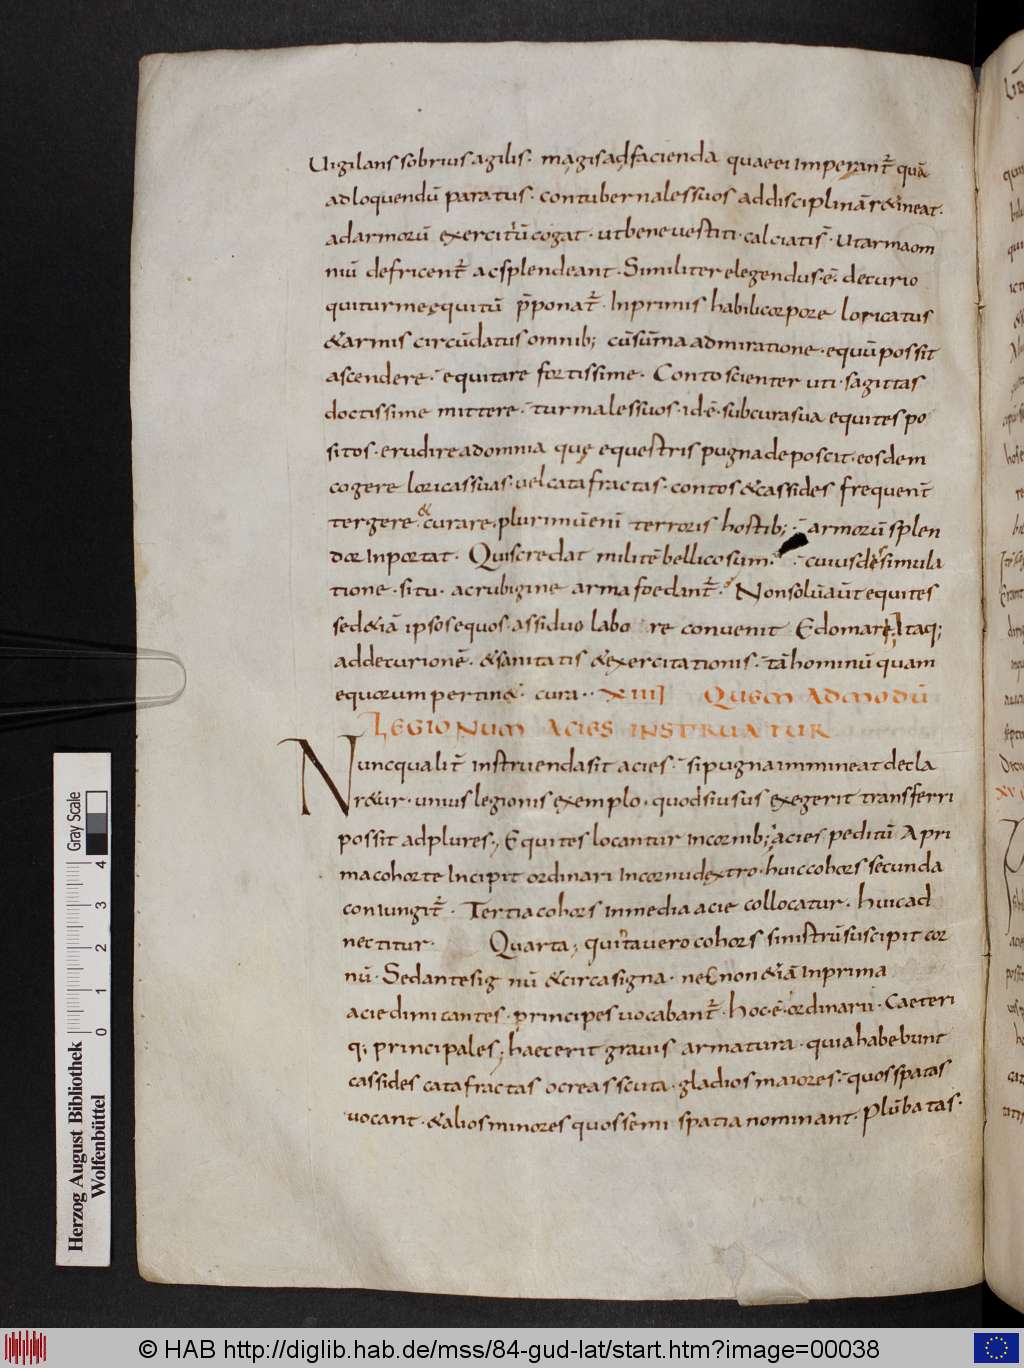 Uigilans sobrius agilis. magis ad facienda quae ei imperant̄ quā
ad loquendū paratus. contubernales suos ad disciplinā r&ineat.
ad armorū exercitiū cogat. ut bene uestiti. calciati s̄. ut arma om
niū defricent̄ ac splendeant. Similiter elegendus. ē. decurio
qui turme equitū p̄ponat̄. Inprimis habili corpore loricatus
& armis circūdatus omnib; cū sūma admiratione. equū possit
ascendere. equitare fortissime. Conto scienter uti. sagittas
doctissime mittere. turmales suos. id. ē. sub cura sua equites po
sitos. erudire ad omnia quę equestris pugna deposcit. eosdem
cogere loricas suas. uel catafractas. contos & cassides frequent̄
tergere. & curare. plurimū enī terroris hostib; armorū splen
dor inportat. Quis credat militē bellicosum. cuius desimula
tione. situ. ac rubigine arma foedant̄. Non solū aūt equites
sed &iā ipsos equos. assiduo labo re conuenit Edomare. Itaq;
ad decurionē. & sanitatis & exercitationis. tā hominū quam
equorum pertin& cura. XIIII QUEM ADMODŪ
LEGIONUM ACIES INSTRUATUR
Nunc qualit̄ instruenda sit acies. si pugna immineat decla
r&ur. unius legionis exemplo. quod si usus exegerit transferri
possit ad plures. Equites locantur in cornib; acies peditū A pri
ma cohorte Incipit ordinari in cornu dextro. huic cohors secunda
coniungit̄. Tertia cohors in media acie collocatur. huic ad
nectitur. Quarta; quinta uero cohors sinistrū suscipit cor
nū. Sed ante sig nū & circa signa. nec non &iā in prima
acie dimicantes. principes uocabant̄. hoc. ē. ordinarii. Caeteri
q; principales; haec erit grauis armatura. quia habebunt
cassides catafractas ocreas scuta. gladios maiores. quos spatas
uocant. & alios minores quos semi spatia nominant. Plūbatas.
Herzog August Bibliothek
Wolfenbüttel
0 1 2 3 4
Gray Scale
© HAB http://diglib.hab.de/mss/84-gud-lat/start.htm?image=00038